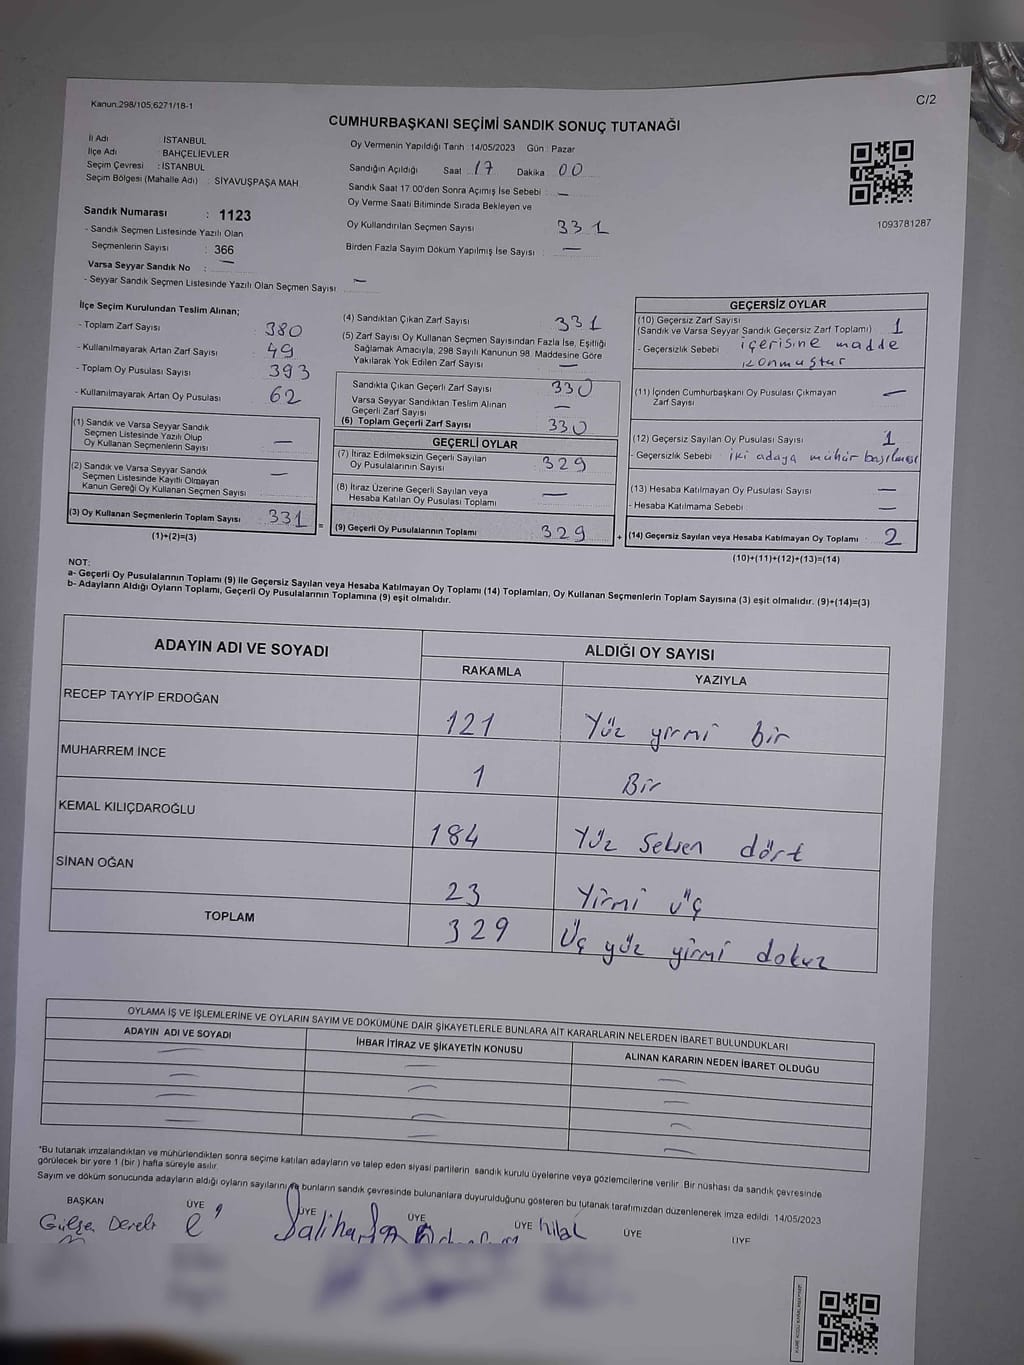 Kanun.298/105,6271/18-1
C/2
CUMHURBAŞKANI SEÇİMİ SANDIK SONUÇ TUTANAĞI
İl Adı : İSTANBUL
İlçe Adı : BAHÇELİEVLER
Seçim Çevresi : İSTANBUL
Seçim Bölgesi (Mahalle Adı) : SİYAVUŞPAŞA MAH
Sandık Numarası : 1123
- Sandık Seçmen Listesinde Yazılı Olan
Seçmenlerin Sayısı : 366
Varsa Seyyar Sandık No : —
- Seyyar Sandık Seçmen Listesinde Yazılı Olan Seçmen Sayısı : —
Oy Vermenin Yapıldığı Tarih :14/05/2023 Gün : Pazar
Sandığın Açıldığı Saat 17 Dakika 00
Sandık Saat 17 00'den Sonra Açımış İse Sebebi : —
Oy Verme Saati Bitiminde Sırada Bekleyen ve
Oy Kullandırılan Seçmen Sayısı 331
Birden Fazla Sayım Döküm Yapılmış İse Sayısı : —
1093781287
İlçe Seçim Kurulundan Teslim Alınan;
- Toplam Zarf Sayısı : 380
- Kullanılmayarak Artan Zarf Sayısı : 49
- Toplam Oy Pusulası Sayısı : 393
- Kullanılmayarak Artan Oy Pusulası : 62
(1) Sandık ve Varsa Seyyar Sandık
Seçmen Listesinde Yazılı Olup
Oy Kullanan Seçmenlerin Sayısı : —
(2) Sandık ve Varsa Seyyar Sandık
Seçmen Listesinde Kayıtlı Olmayan
Kanun Gereği Oy Kullanan Seçmen Sayısı : —
(3) Oy Kullanan Seçmenlerin Toplam Sayısı 331
(1)+(2)=(3)
(4) Sandıktan Çıkan Zarf Sayısı : 331
(5) Zarf Sayısı Oy Kullanan Seçmen Sayısından Fazla İse, Eşitliği
Sağlamak Amacıyla, 298 Sayılı Kanunun 98. Maddesine Göre
Yakılarak Yok Edilen Zarf Sayısı : —
Sandıkta Çıkan Geçerli Zarf Sayısı : 330
Varsa Seyyar Sandıktan Teslim Alınan
Geçerli Zarf Sayısı : —
(6) Toplam Geçerli Zarf Sayısı : 330
GEÇERLİ OYLAR
(7) İtiraz Edilmeksizin Geçerli Sayılan
Oy Pusulalarının Sayısı : 329
(8) İtiraz Üzerine Geçerli Sayılan veya
Hesaba Katılan Oy Pusulası Toplamı : —
(9) Geçerli Oy Pusulalarının Toplamı : 329
GEÇERSİZ OYLAR
(10) Geçersiz Zarf Sayısı
(Sandık ve Varsa Seyyar Sandık Geçersiz Zarf Toplamı) : 1
- Geçersizlik Sebebi : içerisine madde
konmuştur
(11) İçinden Cumhurbaşkanı Oy Pusulası Çıkmayan
Zarf Sayısı : —
(12) Geçersiz Sayılan Oy Pusulası Sayısı : 1
- Geçersizlik Sebebi : iki adaya mühür basılması
(13) Hesaba Katılmayan Oy Pusulası Sayısı : —
- Hesaba Katılmama Sebebi : —
(14) Geçersiz Sayılan veya Hesaba Katılmayan Oy Toplamı : 2
(10)+(11)+(12)+(13)=(14)
NOT:
a- Geçerli Oy Pusulalarının Toplamı (9) ile Geçersiz Sayılan veya Hesaba Katılmayan Oy Toplamı (14) Toplamları, Oy Kullanan Seçmenlerin Toplam Sayısına (3) eşit olmalıdır. (9)+(14)=(3)
b- Adayların Aldığı Oyların Toplamı, Geçerli Oy Pusulalarının Toplamına (9) eşit olmalıdır.
ADAYIN ADI VE SOYADI
ALDIĞI OY SAYISI
RAKAMLA YAZIYLA
RECEP TAYYİP ERDOĞAN 121 Yüz yirmi bir
MUHARREM İNCE 1 Bir
KEMAL KILIÇDAROĞLU 184 Yüz Seksen dört
SİNAN OĞAN 23 Yirmi üç
TOPLAM 329 Üç yüz yirmi dokuz
OYLAMA İŞ VE İŞLEMLERİNE VE OYLARIN SAYIM VE DÖKÜMÜNE DAİR ŞİKAYETLERLE BUNLARA AİT KARARLARIN NELERDEN İBARET BULUNDUKLARI
ADAYIN ADI VE SOYADI İHBAR İTİRAZ VE ŞİKAYETİN KONUSU ALINAN KARARIN NEDEN İBARET OLDUĞU
*Bu tutanak imzalandıktan ve mühürlendikten sonra seçime katılan adayların ve talep eden siyasi partilerin sandık kurulu üyelerine veya gözlemcilerine verilir. Bir nüshası da sandık çevresinde
görülecek bir yere 1 (bir ) hafta süreyle asılır.
Sayım ve döküm sonucunda adayların aldığı oyların sayılarını ve bunların sandık çevresinde bulunanlara duyurulduğunu gösteren bu tutanak tarafımızdan düzenlenerek imza edildi 14/05/2023
BAŞKAN ÜYE ÜYE ÜYE ÜYE ÜYE ÜYE
Hilal